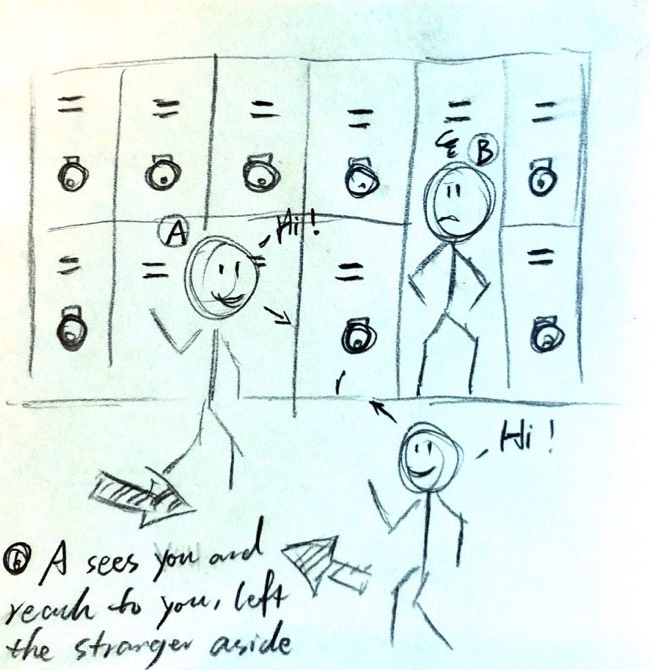 B
A
Hi!
Hi!
⑥ A sees you and
reach to you, left
the stranger aside